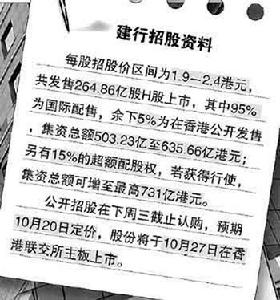 建行招股资料
每股招股价区间为1.9—2.4港元，
共发售264.86亿股H股上市，其中95%
为国际配售，余下5%为在香港公开发售
，集资总额503.23亿至635.66亿港元；
另有15%的超额配股权，若获得行使，
集资总额可增至最高731亿港元。
公开招股在下周三截止认购，预期
10月20日定价，股份将于10月27日在香
港联交所主板上市。